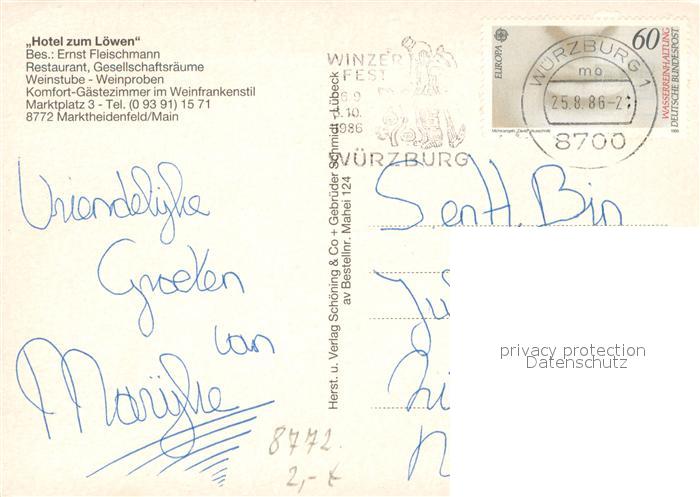 „Hotel zum Löwen“
Bes.: Ernst Fleischmann
Restaurant, Gesellschaftsräume
Weinstube - Weinproben
Komfort-Gästezimmer im Weinfrankenstil
Marktplatz 3 - Tel. (0 93 91) 15 71
8772 Marktheidenfeld/Main
WINZER
FEST
1986
WÜRZBURG
EUROPA
60
WASSERREINHALTUNG
DEUTSCHE BUNDESPOST
WÜRZBURG 1
mo
25.8.86-2
8700
Herst. u. Verlag Schöning & Co + Gebrüder Schmidt - Lübeck
av Bestellnr. Mahei 124
Vriendelijke
Groeten
van
Marijke
S. en H. Bin
privacy protection
Datenschutz
8772.
2,-